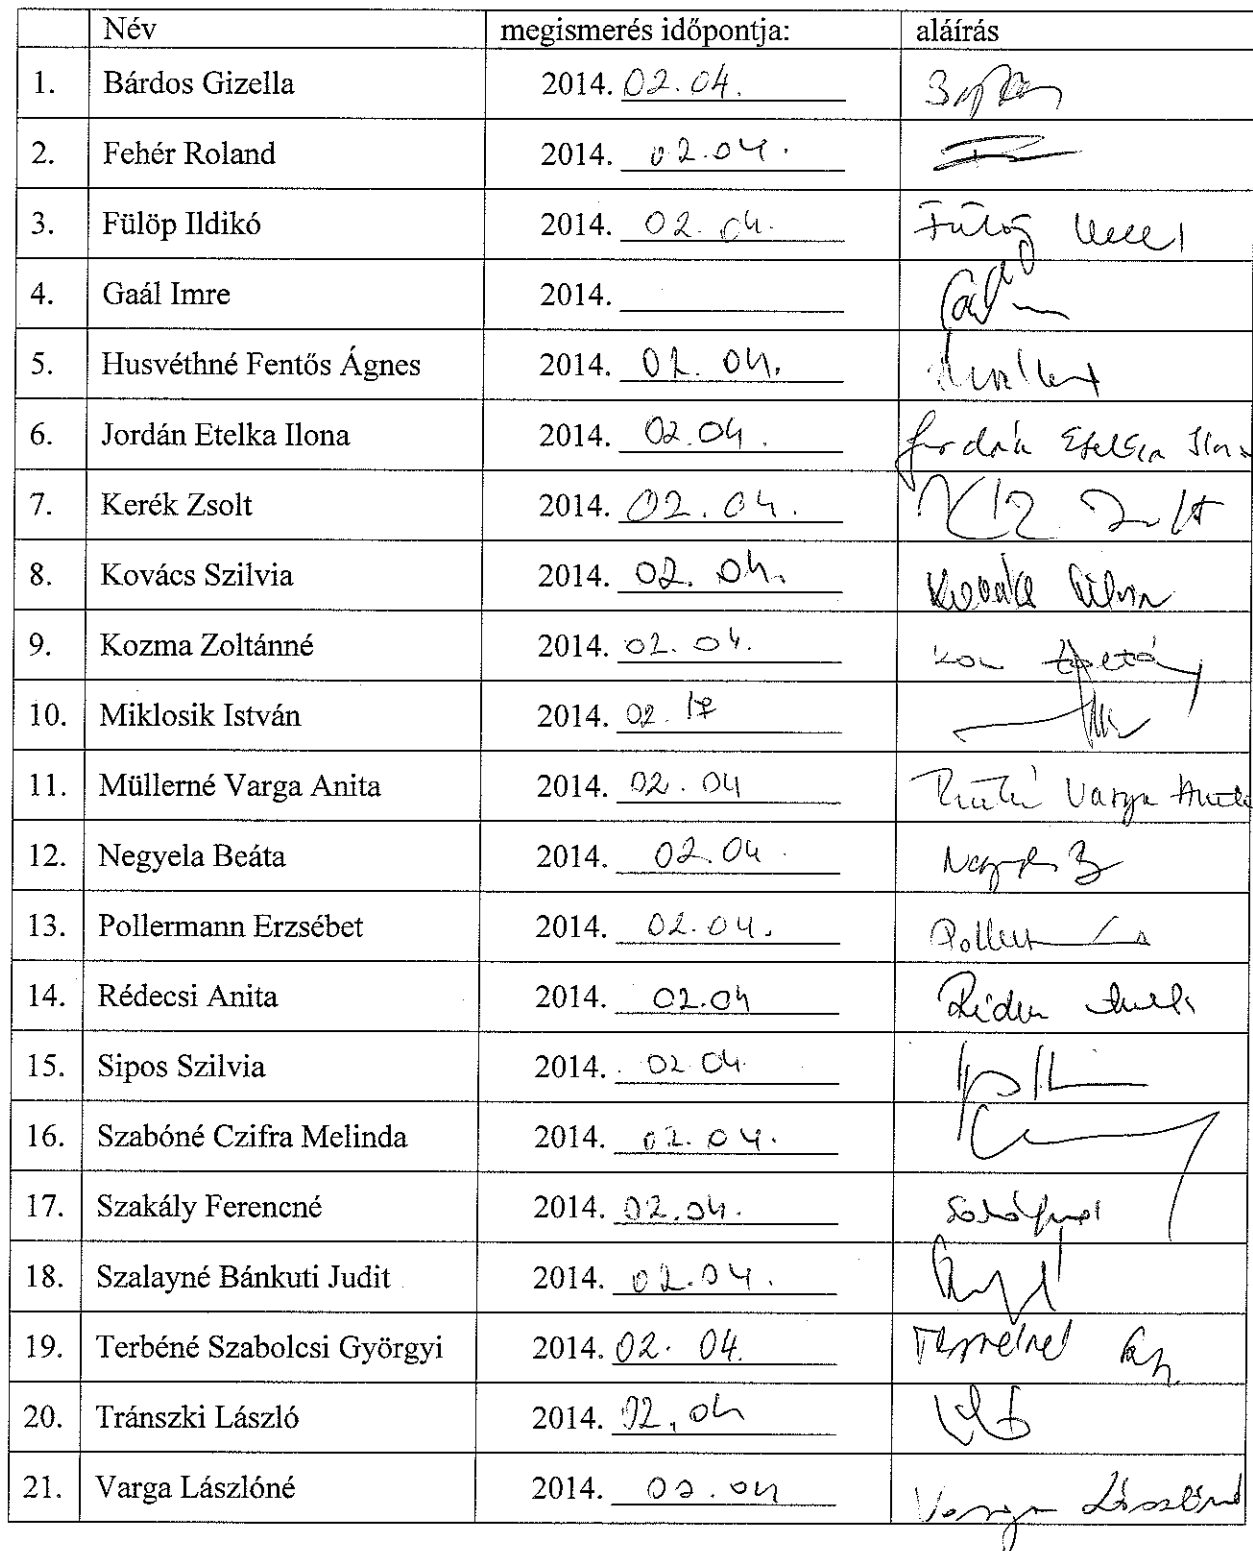 Név megismerés időpontja: aláírás
1. Bárdos Gizella 2014. 02.04.
2. Fehér Roland 2014. 02.04.
3. Fülöp Ildikó 2014. 02.04. Fülöp
4. Gaál Imre 2014.
5. Husvéthné Fentős Ágnes 2014. 02.04.
6. Jordán Etelka Ilona 2014. 02.04. Jordán Etelka Ilona
7. Kerék Zsolt 2014. 02.04. Zsolt
8. Kovács Szilvia 2014. 02.04. Kovács Szilvia
9. Kozma Zoltánné 2014. 02.04.
10. Miklosik István 2014. 02.17
11. Müllerné Varga Anita 2014. 02.04 Varga Anita
12. Negyela Beáta 2014. 02.04.
13. Pollermann Erzsébet 2014. 02.04.
14. Rédecsi Anita 2014. 02.04
15. Sipos Szilvia 2014. 02.04.
16. Szabóné Czifra Melinda 2014. 02.04.
17. Szakály Ferencné 2014. 02.04.
18. Szalayné Bánkuti Judit 2014. 02.04.
19. Terbéné Szabolcsi Györgyi 2014. 02.04.
20. Tránszki László 2014. 02.04
21. Varga Lászlóné 2014. 02.04 Varga Lászlóné